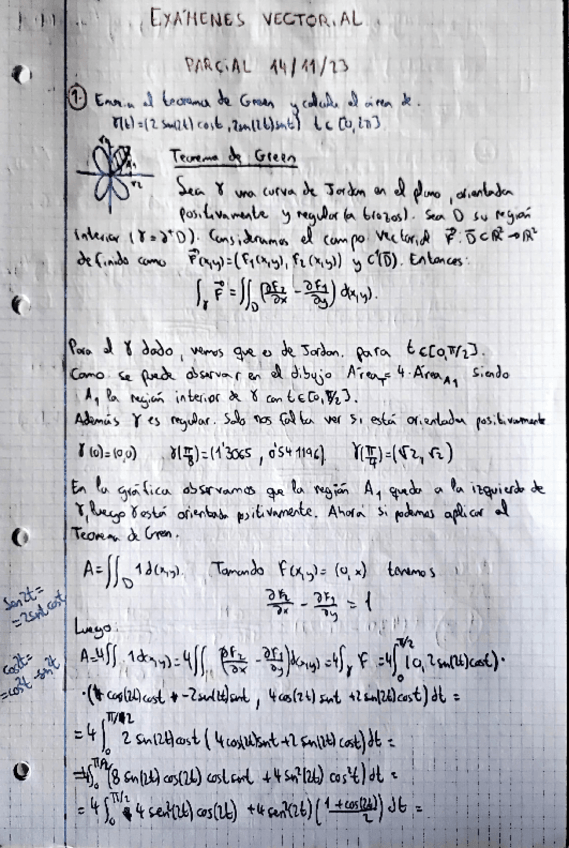 EXÁMENES VECTORIAL.
PARCIAL 14/11/23
1.- Enun. el teorema de Green y calcula el área de.
γ(t)=(2 sen(2t) cost, 2sen(2t)sent) t∈[0,2π]
Teorema de Green
Sea γ una curva de Jordan en el plano, orientada
positivamente y regular (a trozos). Sea D su región
interior (γ=∂⁺D). Consideramos el campo vectorial F: D̄⊂ℝ²→ℝ²
definido como F(x,y)=(F₁(x,y), F₂(x,y)) y C¹(D̄). Entonces:
∫_γ F = ∬_D (∂F₂/∂x - ∂F₁/∂y) d(x,y).
Para el γ dado, vemos que es de Jordan para t∈[0,π/2].
Como se puede observar en el dibujo Área_T = 4·Área_A₁ siendo
A₁ la región interior de γ con t∈[0,π/2].
Además γ es regular. Solo nos falta ver si está orientada positivamente
γ(0)=(0,0) γ(π/8)=(1'3065, 0'541196) γ(π/4)=(√2, √2)
En la gráfica observamos que la región A₁ queda a la izquierda de
γ, luego γ está orientada positivamente. Ahora si podemos aplicar el
Teorema de Green.
A=∬_D 1 d(x,y). Tomando F(x,y)=(0,x) tenemos
∂F₂/∂x - ∂F₁/∂y = 1
sen2t=
=2sent cost
Luego:
A=4∬ 1d(x,y)=4∬ (∂F₂/∂x - ∂F₁/∂y)d(x,y)=4∫_γ F =4∫₀^{π/2} (0, 2sen(2t)cost)·
cos2t=
=cos²t-sen²t
·(4cos(2t)cost + -2sen(2t)sent, 4cos(2t)sent +2sen(2t)cost)dt =
=4∫₀^{π/2} 2sen(2t)cost (4cos(2t)sent+2 sen(2t) cost)dt =
=4∫₀^{π/2} (8 sen(2t) cos(2t) cost sent +4sen²(2t) cos²t)dt =
=4∫₀^{π/2} 4 sen²(2t) cos(2t) +4sen²(2t) (1+cos(2t)/2) dt =